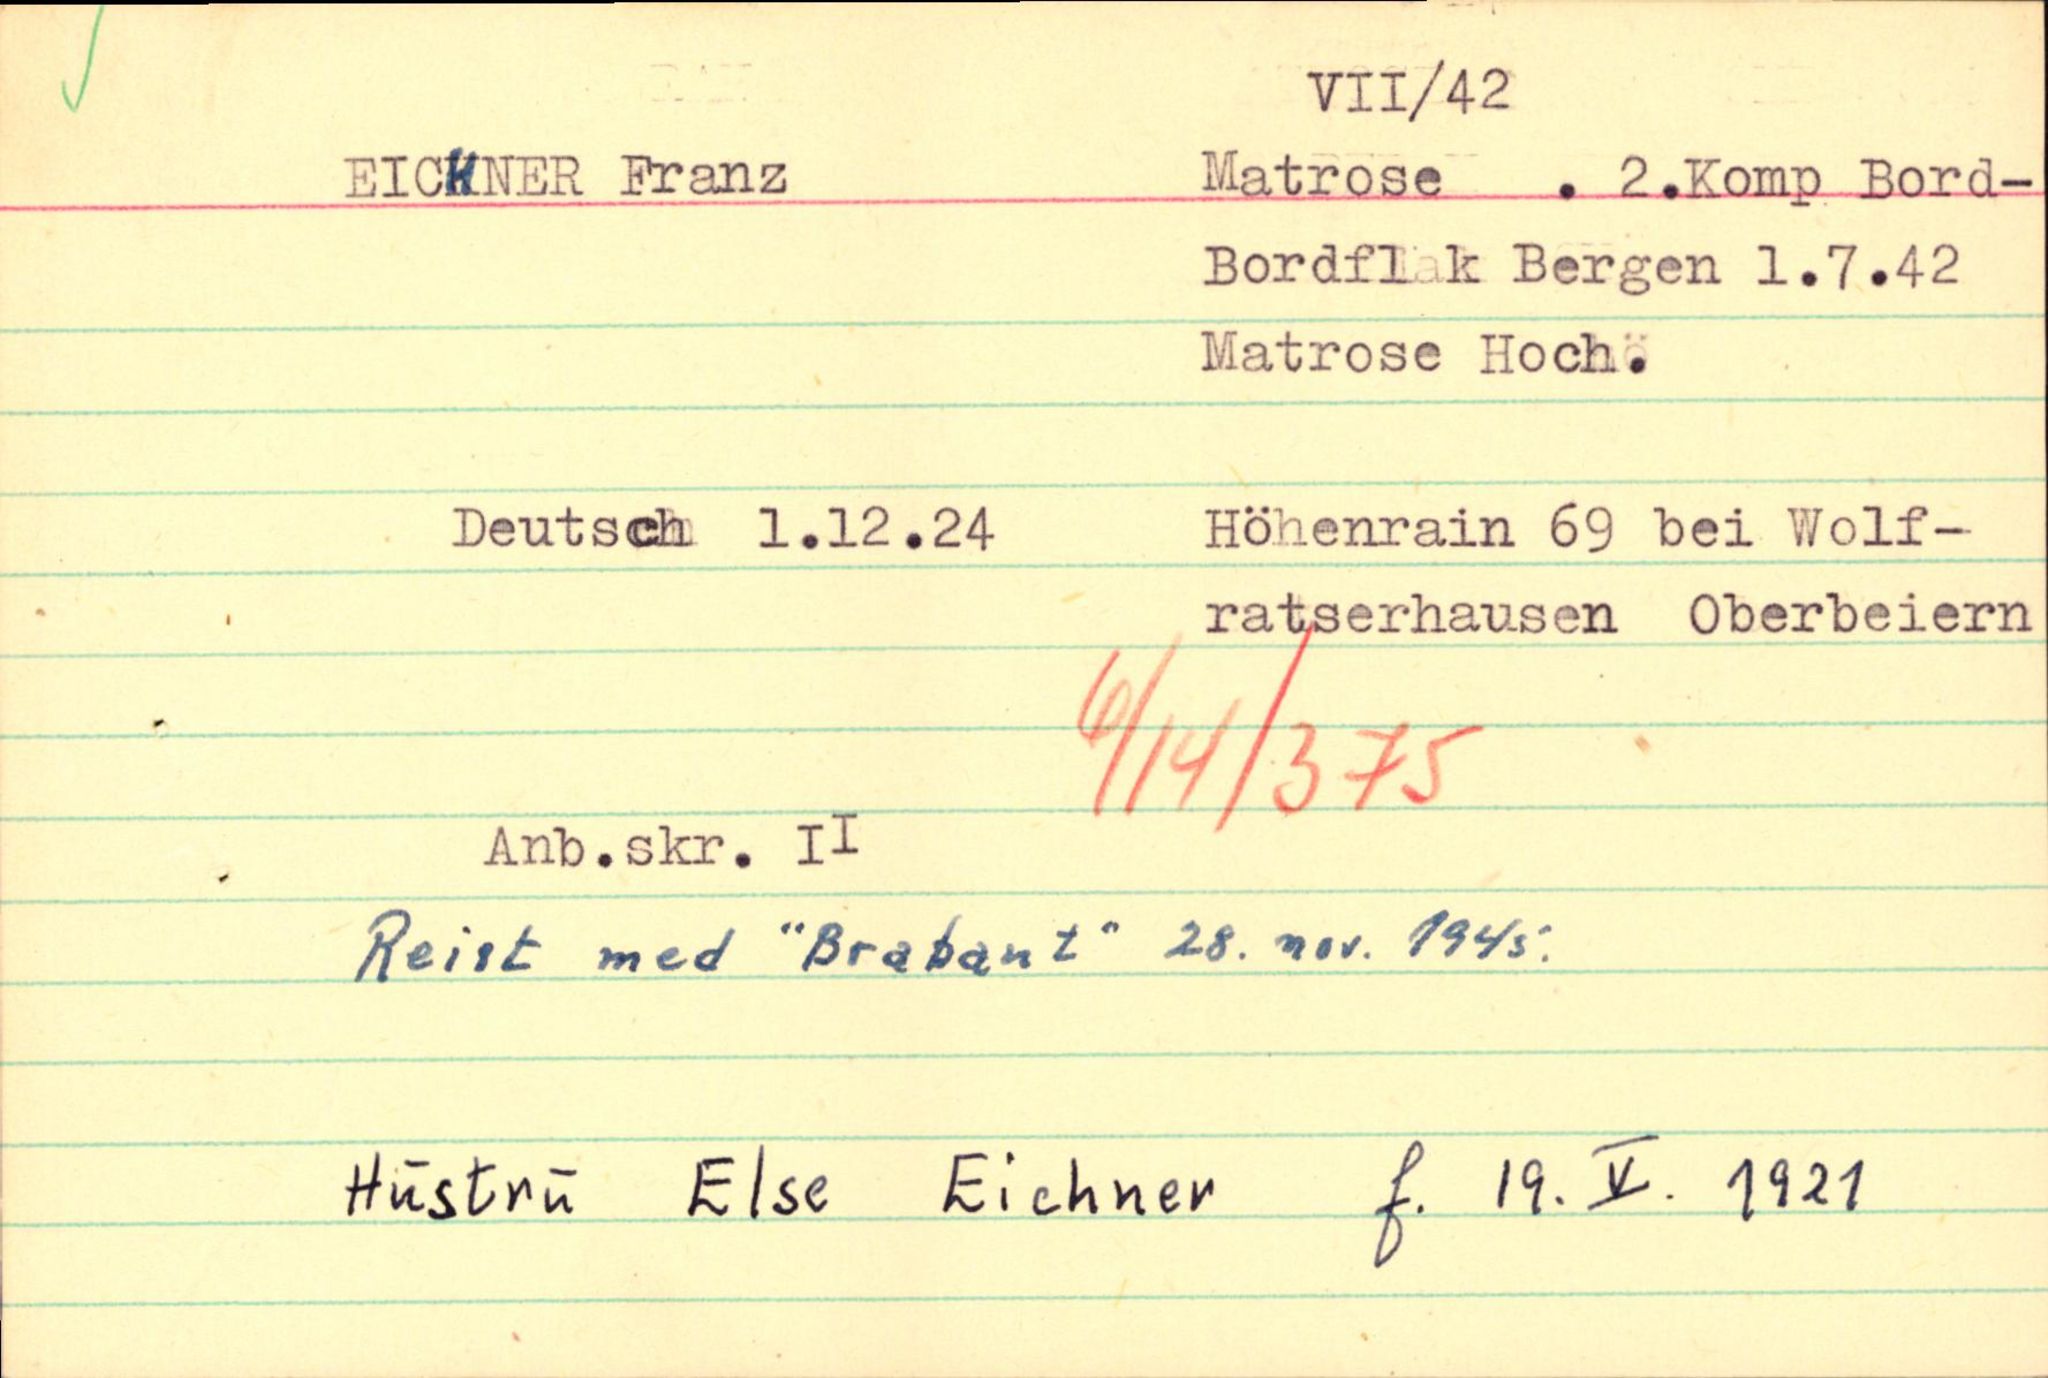 VII/42
EICHNER Franz Matrose . 2.Komp Bord-
Bordflak Bergen 1.7.42
Matrose Hoch.
Deutsch 1.12.24 Höhenrain 69 bei Wolf-
ratserhausen Oberbeiern
6/14/375
Anb.skr. II
Reist med "Brabant" 28. nov. 1945.
Hūstrū Else Eichner f. 19. V. 1921